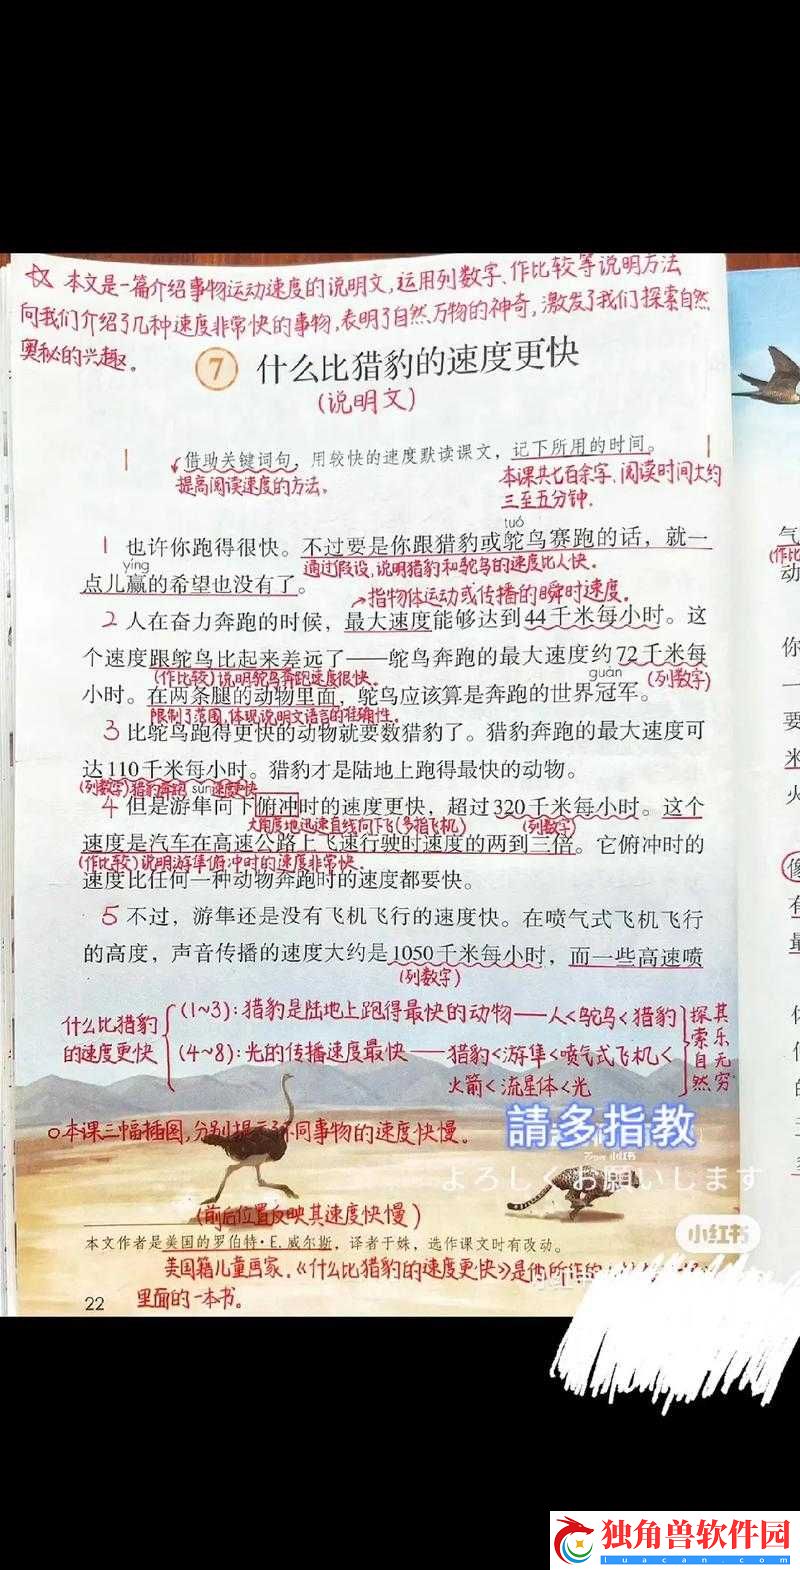 ☆ 本文是一篇介绍事物运动速度的说明文,运用列数字、作比较等说明方法
向我们介绍了几种速度非常快的事物,表明了自然万物的神奇,激发了我们探索自然
奥秘的兴趣。
7 什么比猎豹的速度更快
(说明文)
借助关键词句,用较快的速度默读课文,记下所用的时间。
提高阅读速度的方法。
本课共七百余字、阅读时间大约
三至五分钟.
tuó
1 也许你跑得很快。不过要是你跟猎豹或鸵鸟赛跑的话,就一
yíng
通过假设,说明猎豹和鸵鸟的速度比人快.
点儿赢的希望也没有了。
指物体运动或传播的瞬时速度。
2 人在奋力奔跑的时候,最大速度能够达到44千米每小时。这
个速度跟鸵鸟比起来差远了——鸵鸟奔跑的最大速度约72千米每
(作比较)说明鸵鸟奔跑速度很快.
guàn
(列数字)
小时。在两条腿的动物里面,鸵鸟应该算是奔跑的世界冠军。
限制了范围,体现说明文语言的准确性。
3 比鸵鸟跑得更快的动物就要数猎豹了。猎豹奔跑的最大速度可
达110千米每小时。猎豹才是陆地上跑得最快的动物。
(列数字)猎豹奔跑
sǔn
速度更快
4 但是游隼向下俯冲时的速度更快,超过320千米每小时。这个
大角度地迅速直线向下飞(多指飞机)
(列数字)
速度是汽车在高速公路上飞速行驶时速度的两到三倍。它俯冲时的
(作比较)说明游隼俯冲时的速度非常快.
速度比任何一种动物奔跑时的速度都要快。
5 不过,游隼还是没有飞机飞行的速度快。在喷气式飞机飞行
的高度,声音传播的速度大约是1050千米每小时,而一些高速喷
(列数字)
什么比猎豹
的速度更快
(1~3):猎豹是陆地上跑得最快的动物——人<鸵鸟<猎豹
(4~8):光的传播速度最快——猎豹<游隼<喷气式飞机<
火箭<流星体<光
探索自然
其乐无穷
請多指教
本课三幅插图,分别提示不同事物的速度快慢。
小红书
よろしくお願いします
(前后位置反映其速度快慢)
小红书
本文作者是美国的罗伯特·E.威尔斯,译者于姝,选作课文时有改动。
美国籍儿童画家.《什么比猎豹的速度更快》是他所作的
里面的一本书。
22
气
(作比
动
你
一
要
米
火
像
有
最
独角兽软件园
luacan.com